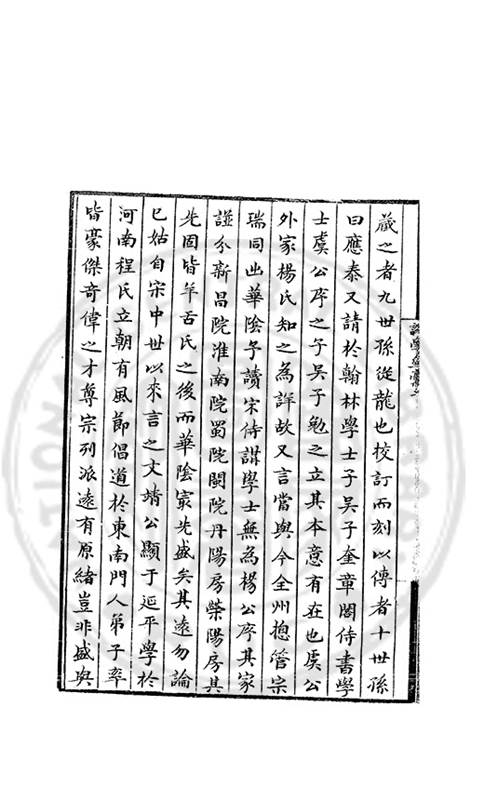 藏之者九世孫從龍也校訂而刻以傳者十世孫
曰應泰又請於翰林學士子吳子奎章閣侍書學
士虞公序之予吳子勉之立其本意有在也虞公
外家楊氏知之為詳故又言當與今全州摠管宗
瑞同出華陰予讀宋侍講學士無為楊公序其家
譜分新昌院淮南院蜀院閩院丹陽房滎陽房其
先固皆羊舌氏之後而華陰㝡先盛矣其遠勿論
已姑自宋中世以來言之文靖公顯于延平學於
河南程氏立朝有風節倡道於東南門人弟子率
皆豪傑奇偉之才尊宗列派遠有原緒豈非盛與